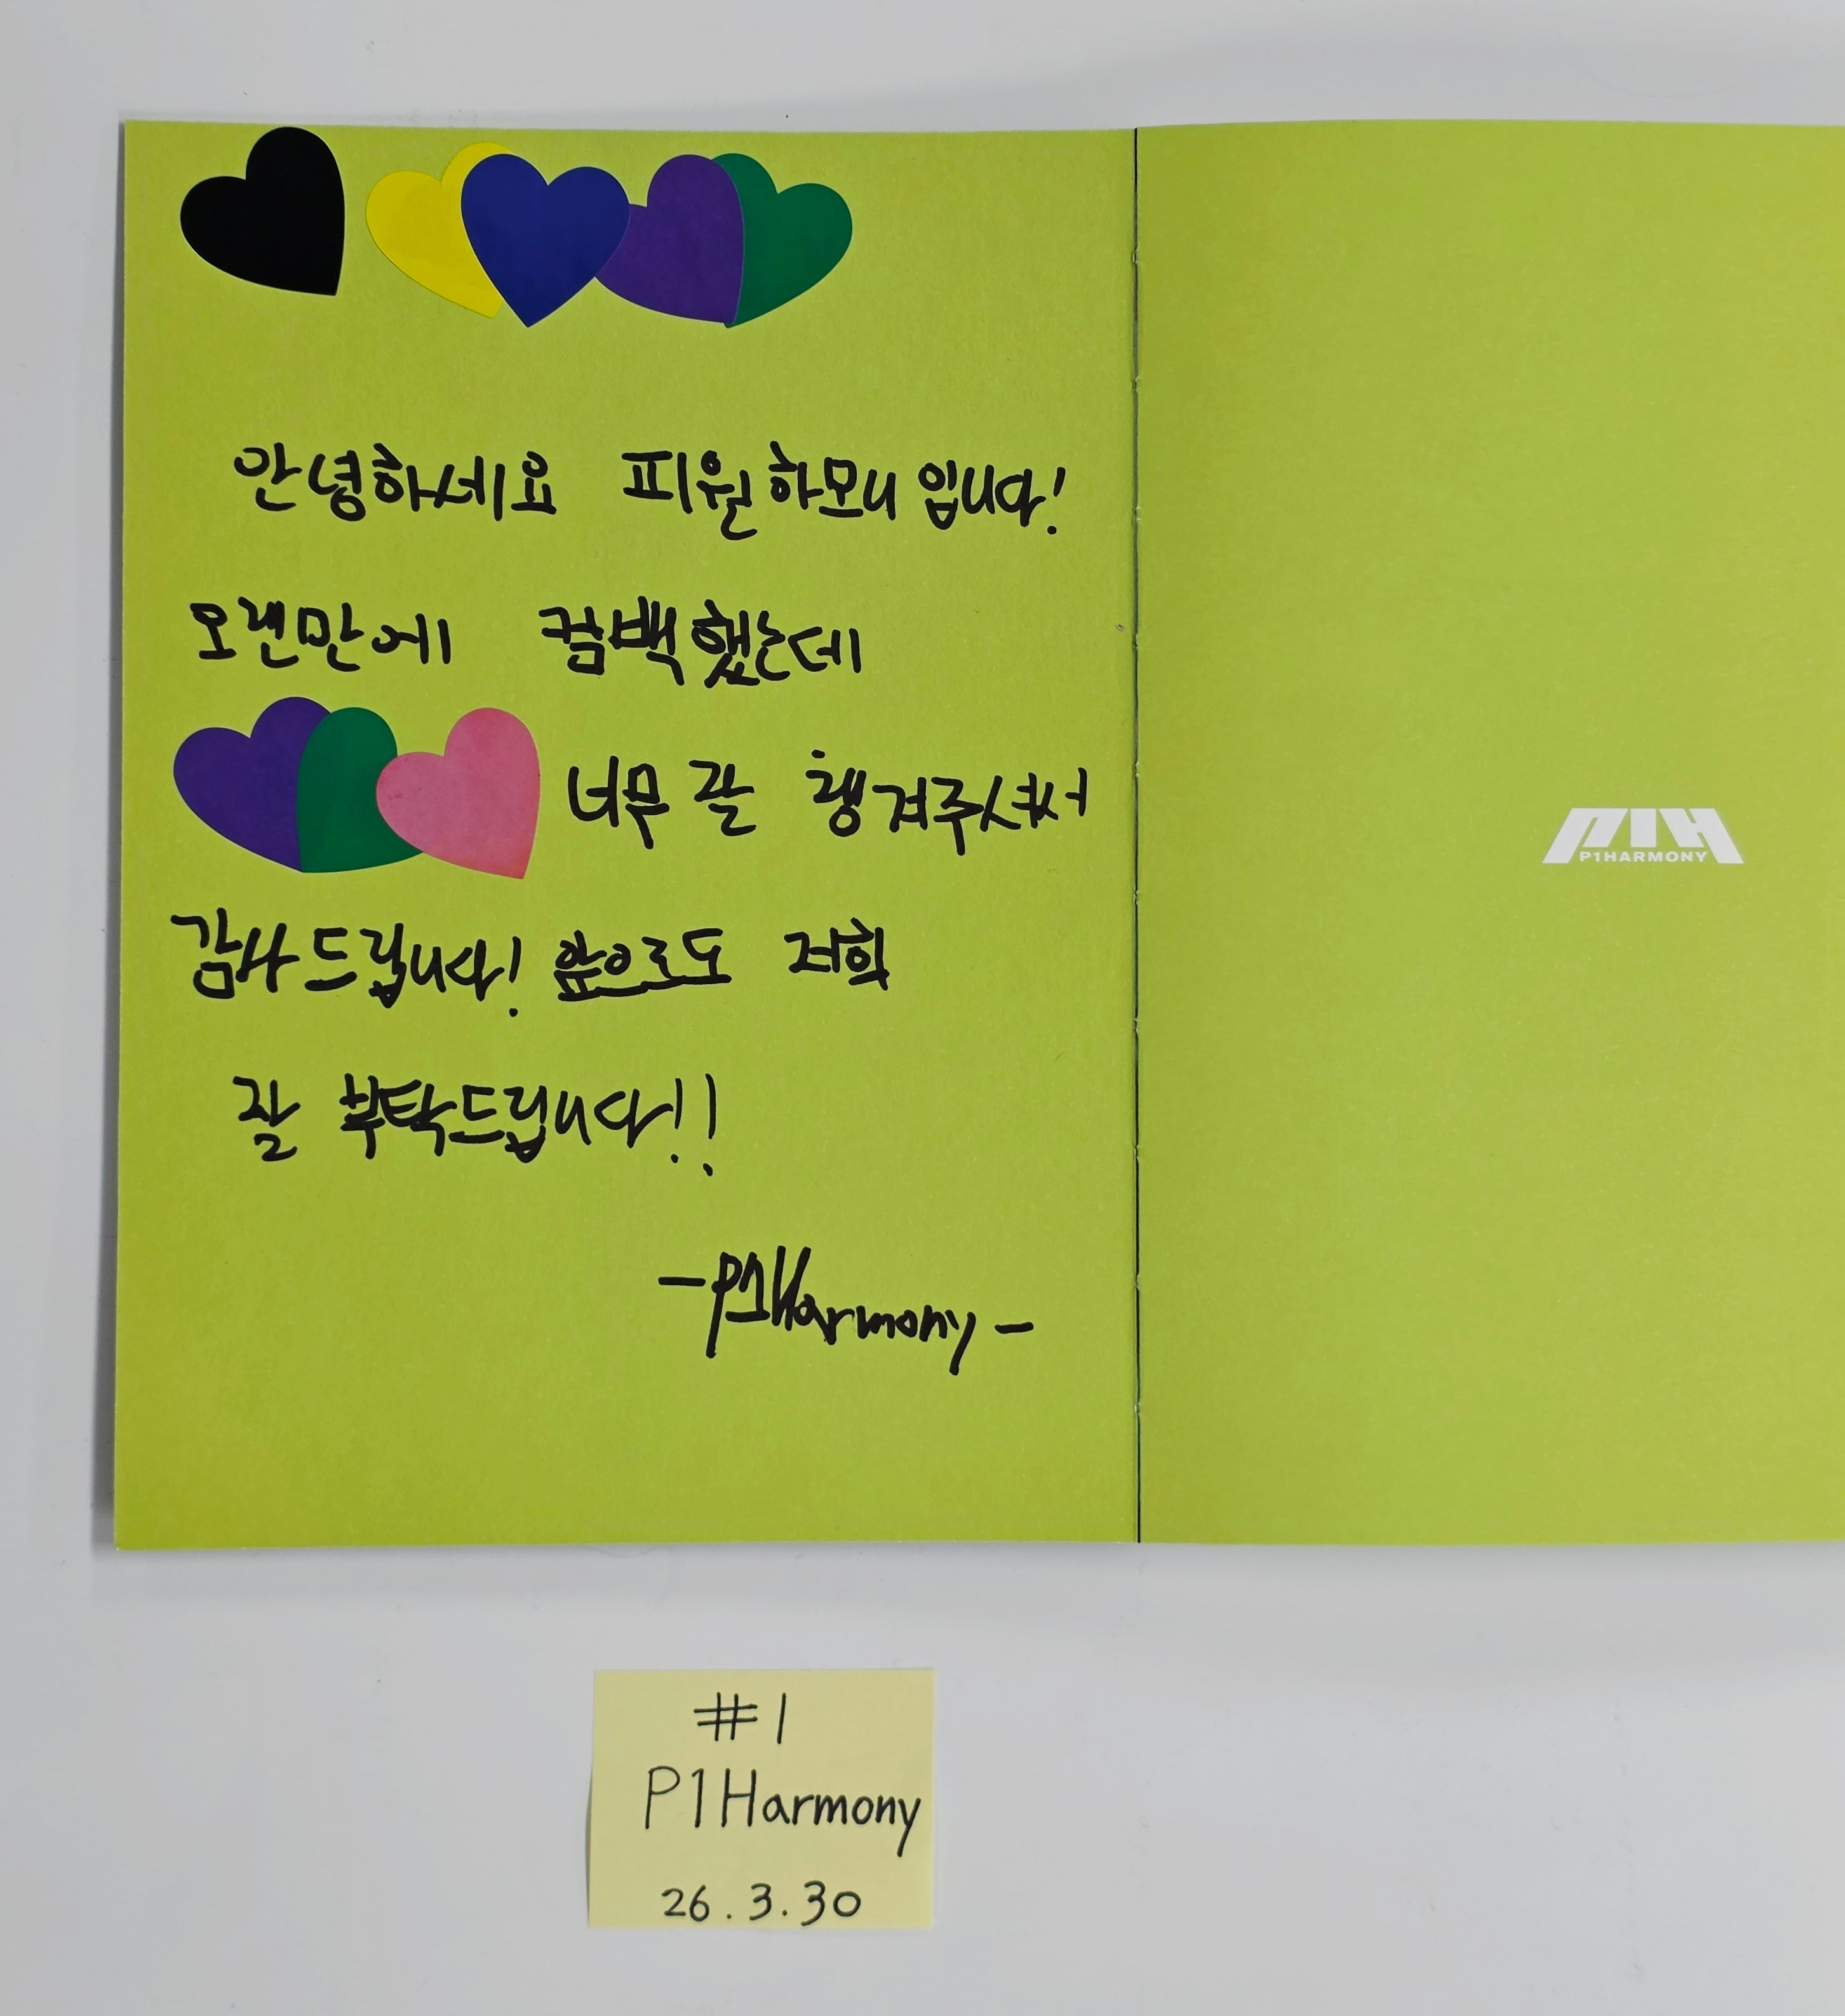 안녕하세요 피원하모니 입니다!
오랜만에 컴백했는데
너무 잘 챙겨주셔서
감사드립니다! 앞으로도 저희
잘 부탁드립니다!!
-P1Harmony-
P1H
P1HARMONY
#1
P1Harmony
26.3.30